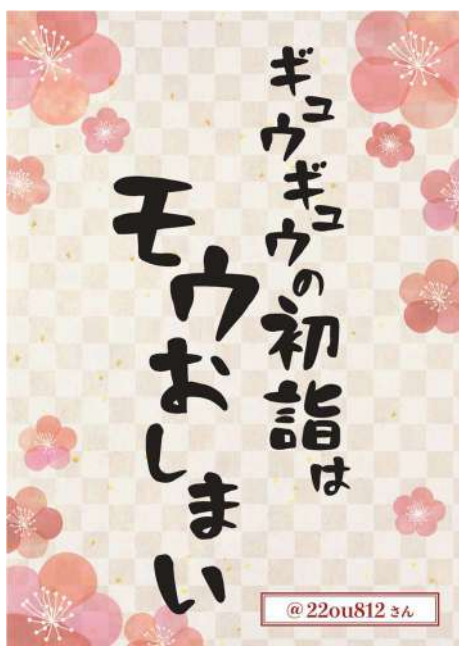 ギュウギュウの初詣は
モウおしまい
@22ou812さん